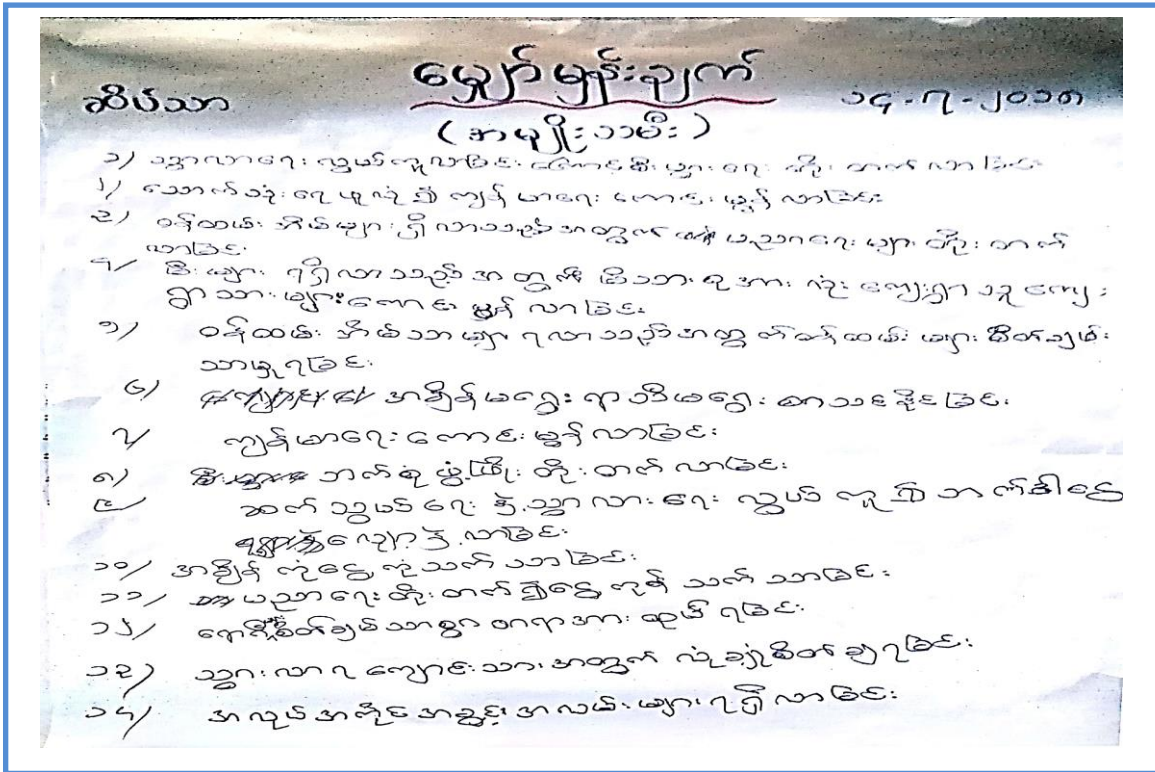 မျှော်မှန်းချက်
ဆိပ်သာ ၁၄-၇-၂၀၁၈
(အမျိုးသမီး)
၁) သွားလာရေး လွယ်ကူလာခြင်း စီးပွားရေး တိုးတက်လာခြင်း
၂/ သောက်သုံးရေ ရ၍ ကျန်မာရေး ကောင်းမွန်လာခြင်း
၃/ ဝန်ထမ်းအိမ်များရှိလာသည့်အတွက် ပညာရေးများတိုးတက်
လာခြင်း
၄/ မီးများ ရရှိလာသည့်အတွက် မိသားစုအားလုံး ကျေးရွာသူကျေး
ရွာသားများကောင်းမွန်လာခြင်း
၅/ ဝန်ထမ်းအိမ်ယာများရလာသည့်အတွက်ဝန်ထမ်းများစိတ်ချမ်း
သာမှုရခြင်း
၆/ အချိန်မရွေးရာသီမရွေး စာသင်နိုင်ခြင်း
၇/ ကျန်မာရေးကောင်းမွန်လာခြင်း
၈/ ဘက်စုံဖွံ့ဖြိုးတိုးတက်လာခြင်း
၉/ ဆက်သွယ်ရေးနဲ့သွားလာရေး လွယ်ကူ၍ဘက်ဒါငွေ
လျော့နဲ့လာခြင်း
၁၀/ အချိန်ကုန်ငွေကုန်သက်သာခြင်း
၁၁/ ပညာရေးတိုးတက်၍ငွေကုန်သက်သာခြင်း
၁၂/ စိတ်ချမ်သာစွာ တရားအားထုတ်ရခြင်း
၁၃/ သွားလာရ ကျောင်းသားအတွက် လုံခြုံစိတ်ချရခြင်း
၁၄/ အလုပ်အကိုင်အခွင့်အလမ်းများရရှိလာခြင်း